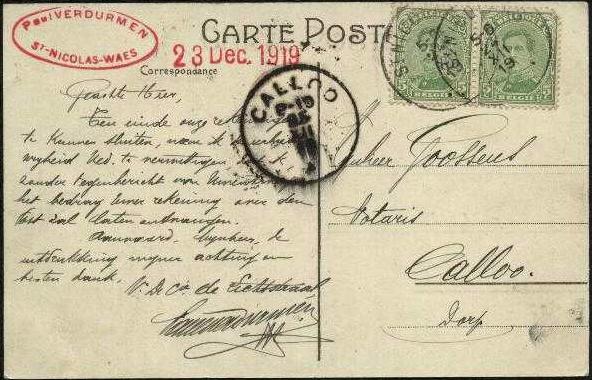 Paul VERDURMEN
St-NICOLAS-WAES
CARTE POSTALE
23 Dec. 1919
Correspondance
Geachte Heer,
Ten einde onze
te kunnen sluiten, neem ik
vrijheid Ued. te
zonder tegenbericht van Uwentwege
het bedrag onzer rekening over den
Post zal laten ontvangen.
Aanvaard, Mynheer, de
uitdrukking mijner achting en
besten dank.
de
CALLOO
Mynheer Goossens
Notaris
Calloo.
Dorp
BELGIE